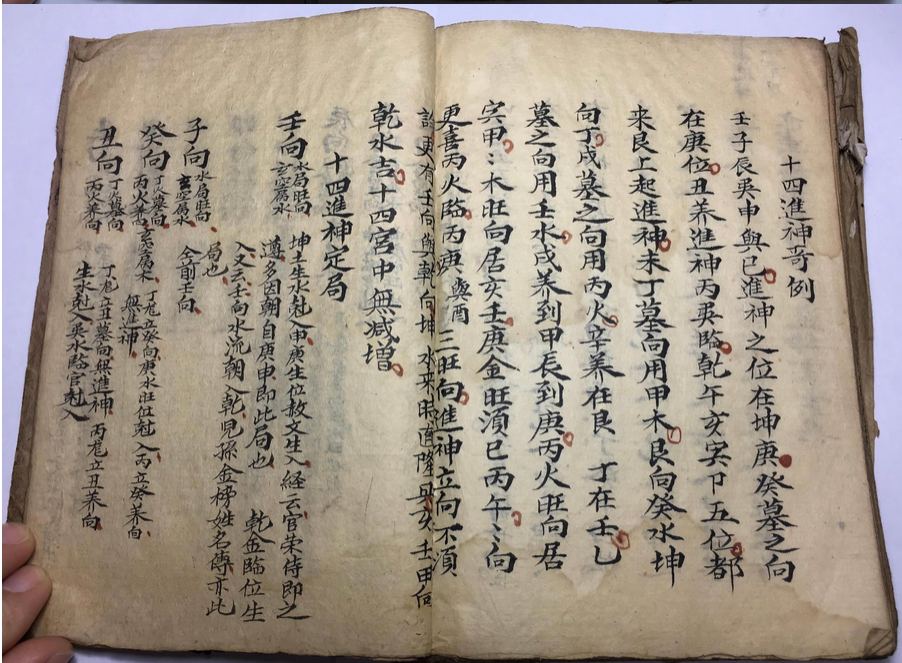 十四進神奇例
壬子辰寅申與巳進神之位在坤庚癸墓之向
在庚位丑养進神丙寅臨乾午亥寅卩五位都
来艮上起進神未丁墓向用甲木艮向癸水坤
向丁戌墓之向用丙火辛养在艮丁在壬乙
墓之向用壬水戌养到甲辰到庚丙火旺向居
寅甲〻木旺向居亥壬庚金旺湏巳丙午〻向
更喜丙火臨丙庚 與酉三旺向進神立向不須
訣更有壬向與乾向坤水来眼道隆亥壬甲向
乾水吉十四宫中無减增
十四進神定局
壬向 水局旺向 玄空属水 坤土生水尅入申庚生位敖文生入経云官荣侍即之
遵多因朝自庚申即此局也 乾金臨位生
入又云壬向水流朝入乾児孫金榜姓名傳亦此
局也
子向 水局旺向 玄空属水 仝前壬向
癸向 丁火墓向 丙火养向 玄空属木 丁庬立癸向庚水旺位尅入丙立癸养向
無進神
丑向 丁火墓向 丙火养向 丁庬立丑墓向無進神 丙庬立丑养向
生水尅入寅水臨官尅入